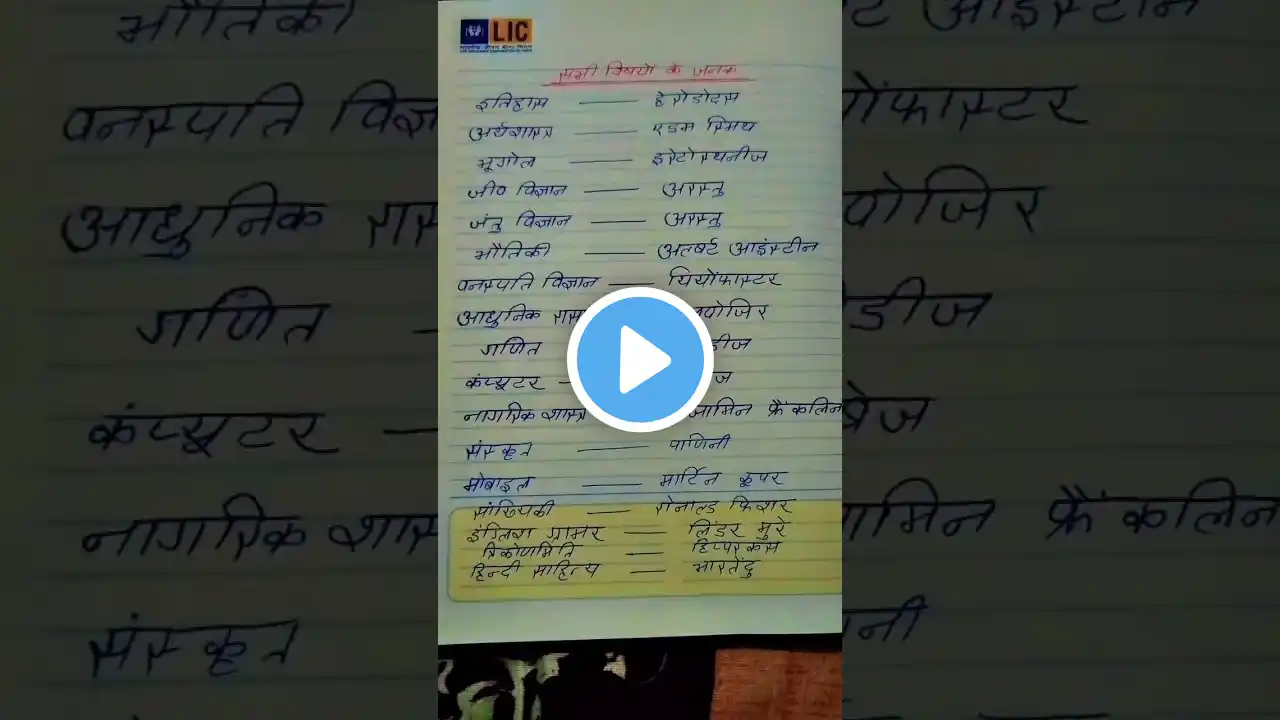 LIC
सभी विषयों के जनक
इतिहास — हेरोडोटस
अर्थशास्त्र — एडम स्मिथ
भूगोल — इरेटोस्थनीज
जीव विज्ञान — अरस्तु
जंतु विज्ञान — अरस्तु
भौतिकी — अल्बर्ट आइंस्टीन
वनस्पति विज्ञान — थियोफास्टर
आधुनिक
गणित
कंप्यूटर —
नागरिक शास्त्र फ्रैंकलिन
संस्कृत — पाणिनी
मोबाइल — मार्टिन कूपर
सांख्यिकी — रोनाल्ड फिशर
इंग्लिश ग्रामर — लिंडर मुरे
त्रिकोणमिति — हिप्परकस
हिन्दी साहित्य — भारतेंदु